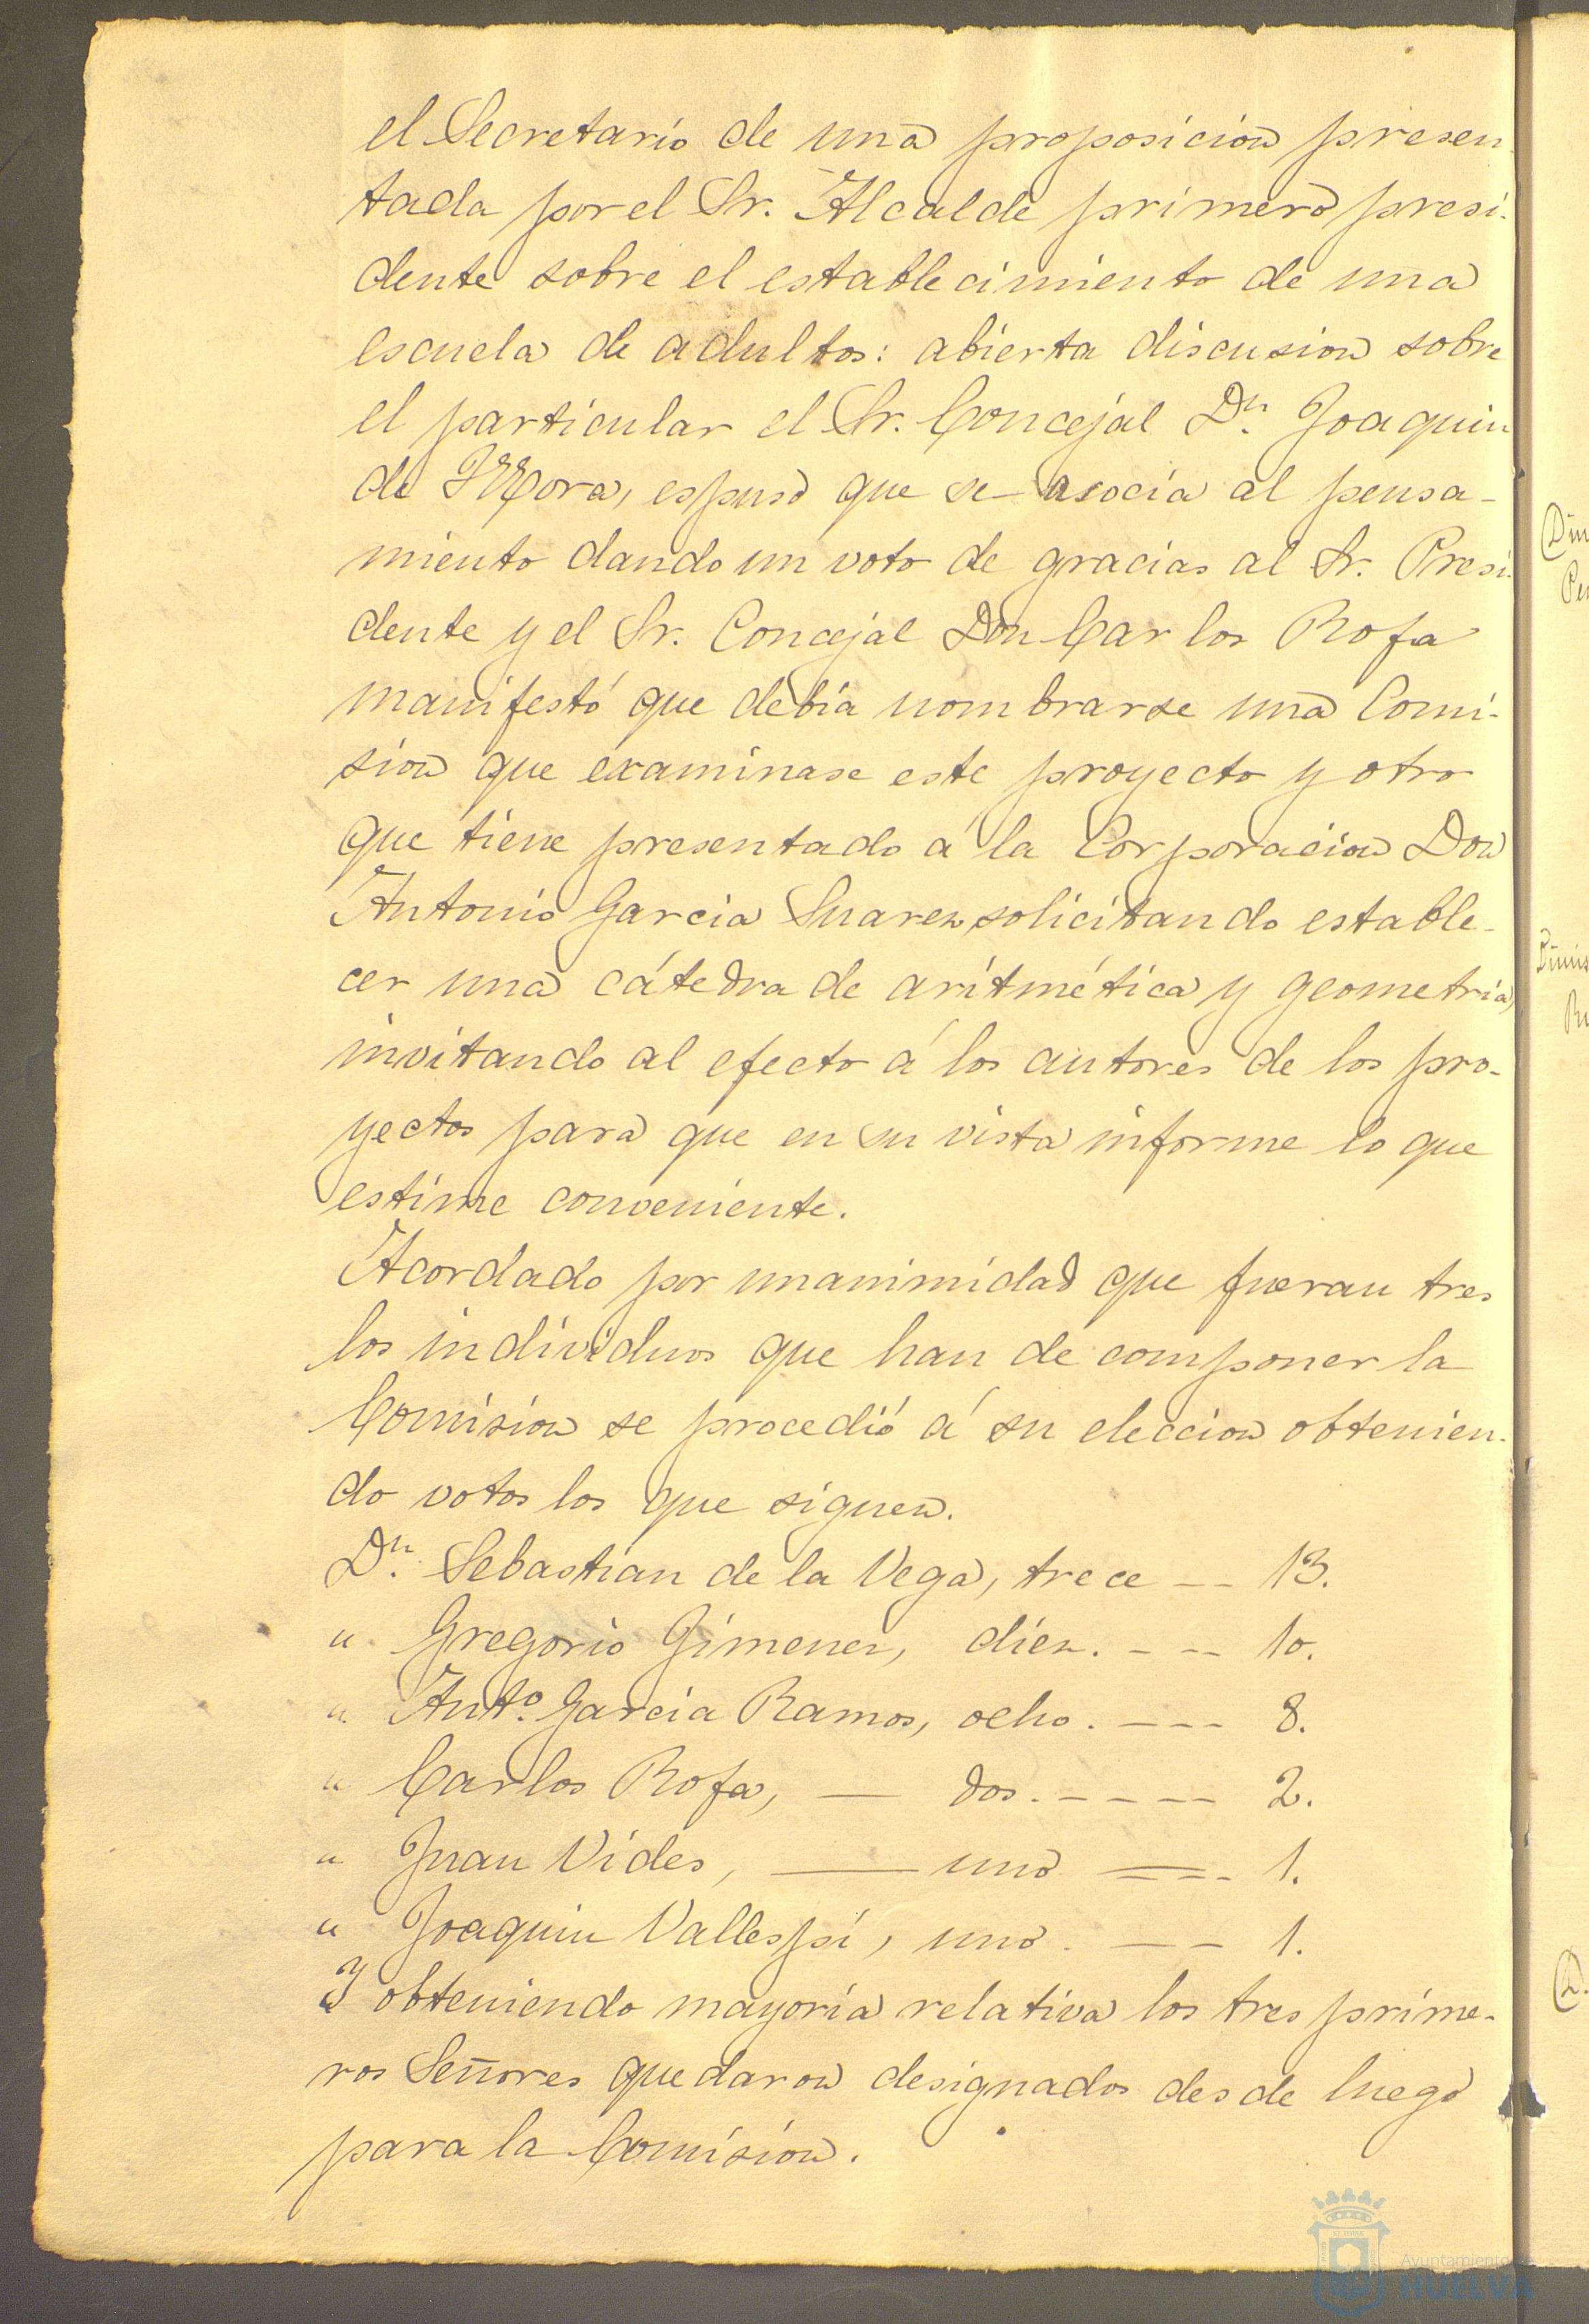 el Secretario de una proposicion presen
tada por el Sr. Alcalde primero presi-
dente sobre el establecimiento de una
escuela de adultos: abierta discusion sobre
el particular el Sr. Concejal Dn. Joaquin
de Mora, espuso que se asocia al pensa-
miento dando un voto de gracias al Sr. Presi-
dente y el Sr. Concejal Don Carlos Rofa
manifestó que debia nombrarse una Comi-
sion que examinase este proyecto y otro
que tiene presentado á la Corporacion Don
Antonio Garcia Suarez solicitando estable-
cer una cátedra de aritmética y geometria,
invitando al efecto á los autores de los pro-
yectos para que en su vista informe lo que
estime conveniente.
Acordado por unanimidad que fueran tres
los individuos que han de componer la
Comision se procedió á su eleccion obtenien-
do votos los que siguen.
Dn. Sebastian de la Vega, trece -- 13.
" Gregorio Gimenez, diez. --- 10.
" Anto. Garcia Ramos, ocho. --- 8.
" Carlos Rofa, — dos. ----- 2.
" Juan Vides, — uno --- 1.
" Joaquin Vallespi, uno. -- 1.
Y obteniendo mayoria relativa los tres prime-
ros Señores quedaron designados desde luego
para la Comision.
Ayuntamiento de
HUELVA